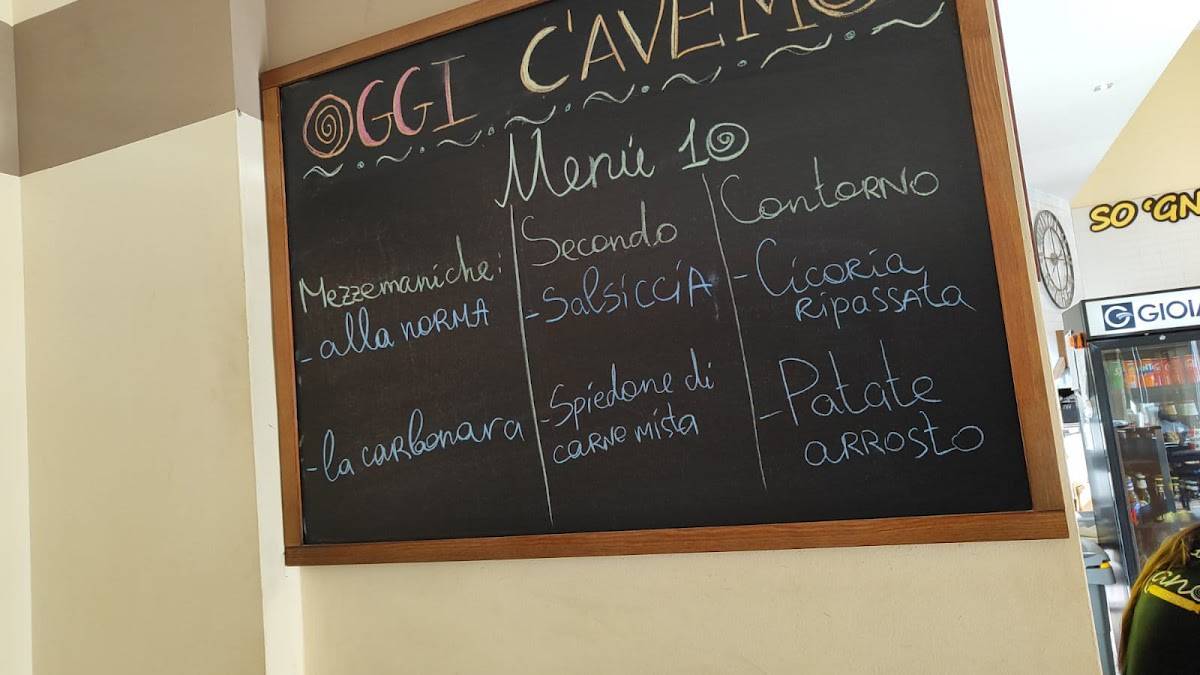 OGGI C'AVEMO
Menù 10
Mezzemaniche:
- alla NORMA
- la carbonara
Secondo
- Salsiccia
- Spiedone di
carne mista
Contorno
- Cicoria
Ripassata
- Patate
arrosto
SO 'GN
GIOIA